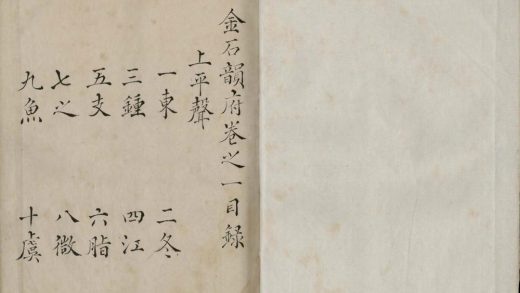 金石韻府卷之一目録
上平聲
一東 二冬
三鍾 四江
五支 六脂
七之 八微
九魚 十虞